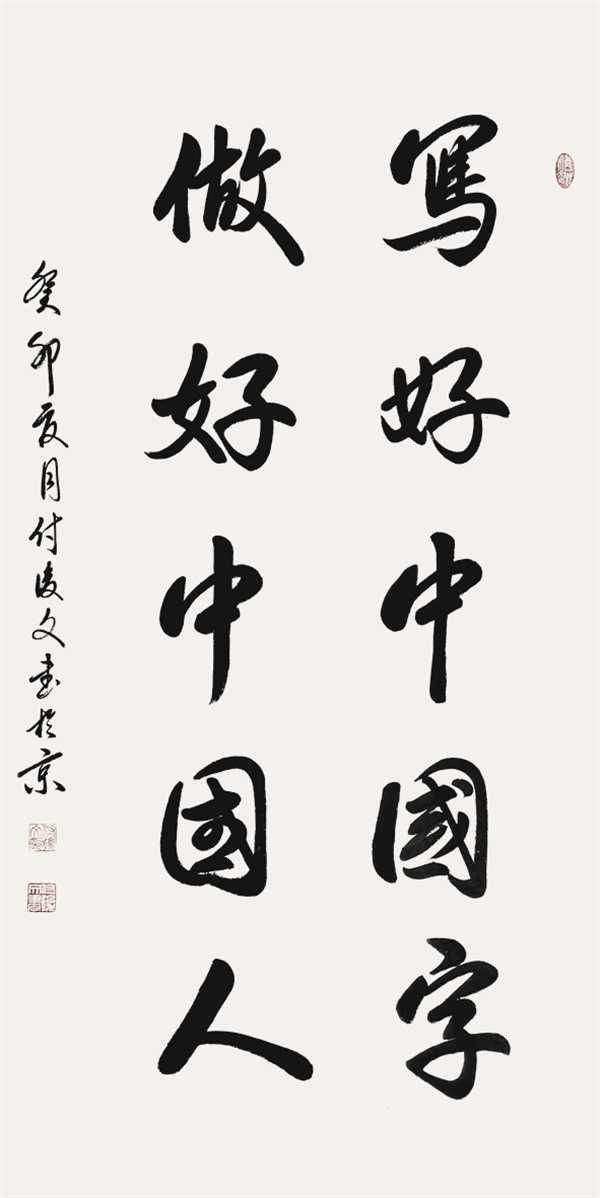 寫好中國字
做好中国人
癸卯夏月付俊文书於京